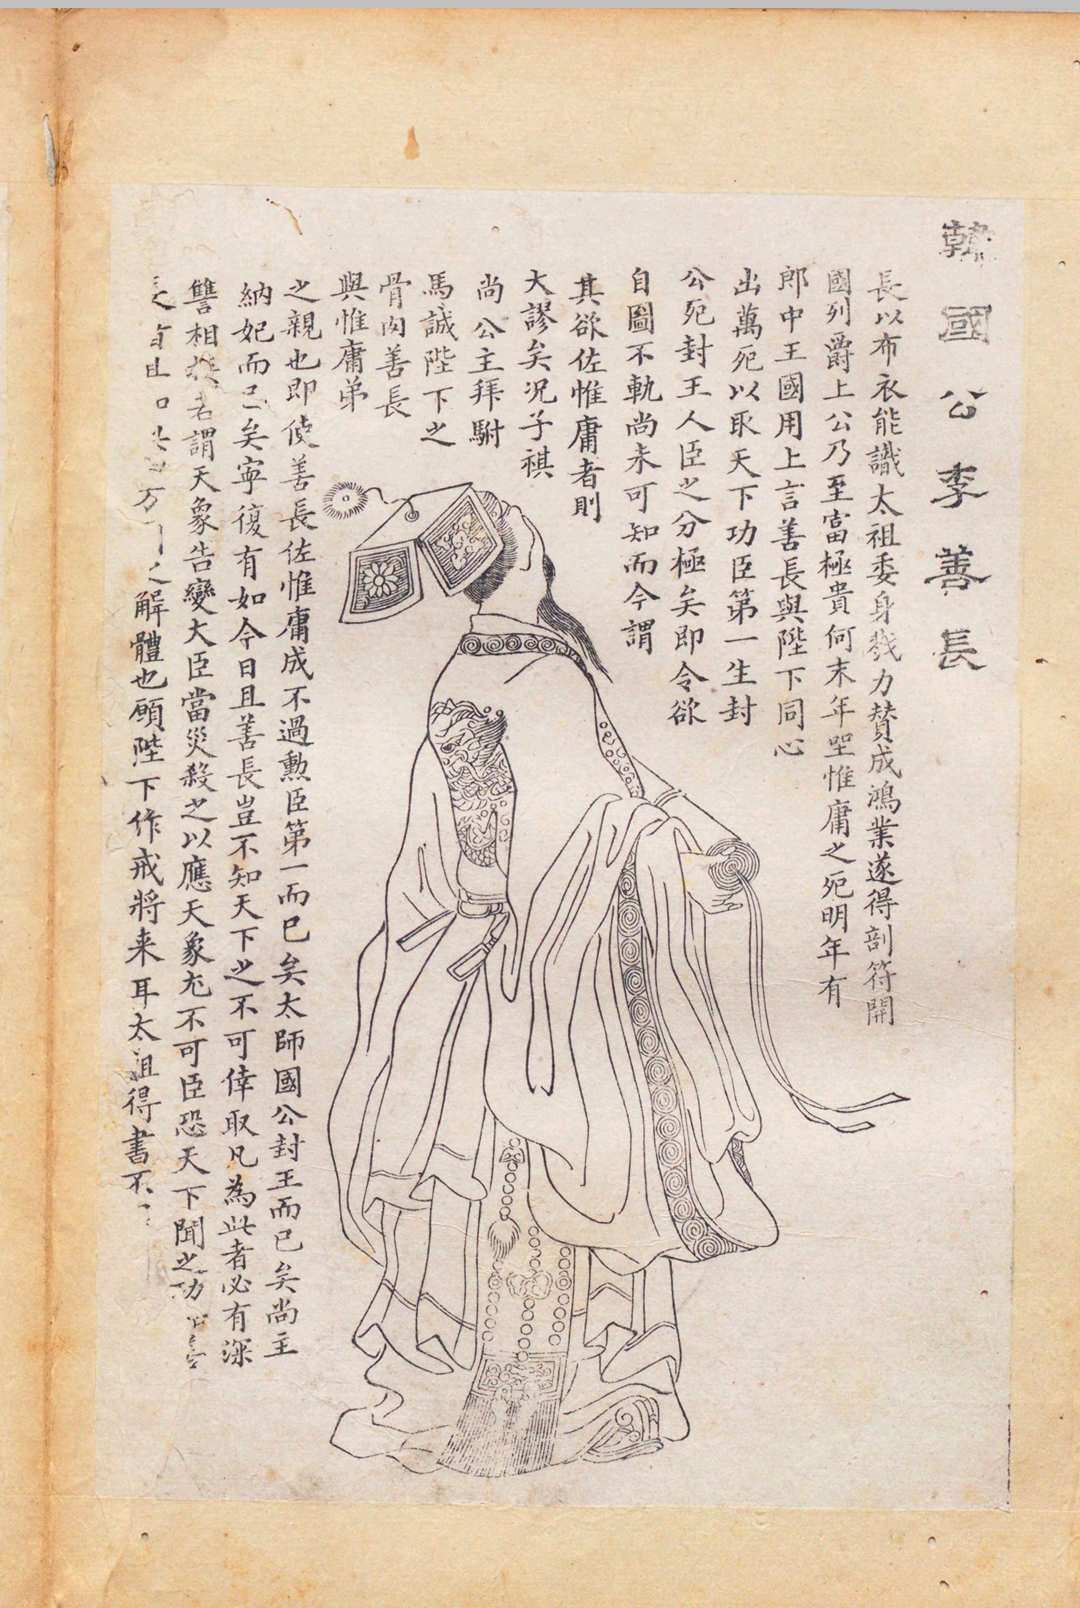 韓國公李善長
長以布衣能識太祖委身戮力贊成鴻業遂得剖符開
國列爵上公乃至富極貴何末年坐惟庸之死明年有
郎中王國用上言善長與陛下同心
出萬死以取天下功臣第一生封
公死封王人臣之分極矣即令欲
自圖不軌尚未可知而今謂
其欲佐惟庸者則
大謬矣况子祺
尚公主拜駙
馬誠陛下之
骨肉善長
與惟庸弟
之親也即使善長佐惟庸成不過勲臣第一而已矣太師國公封王而已矣尚主
納妃而已矣寧復有如今日且善長豈不知天下之不可倖取凡為此者必有深
讐相 者謂天象告變大臣當災殺之以應天象尤不可臣恐天下聞之功
解體也願陛下作戒將来耳太祖得書不